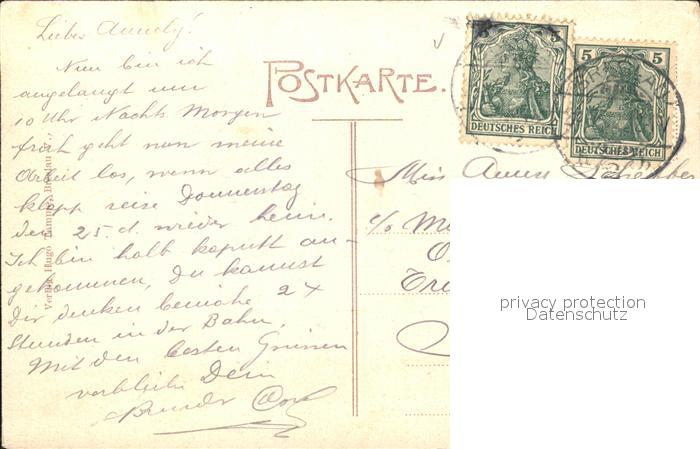 Liebes Annely!
Nun bin ich
angelangt um
10 Uhr Nachts Morgen
früh geht nun meine
Arbeit los, wenn alles
klapp reise Donnerstag
den 25. d. wieder heim.
Ich bin halb kaputt an-
gekommen, Du kannst
Dir denken beinahe 24
Stunden in der Bahn.
Mit den besten Grüssen
verbleibe Dein
Bruder
Verlag Hugo
POSTKARTE.
5 5
DEUTSCHES REICH
5 5
DEUTSCHES REICH
Miss
c/o
privacy protection
Datenschutz